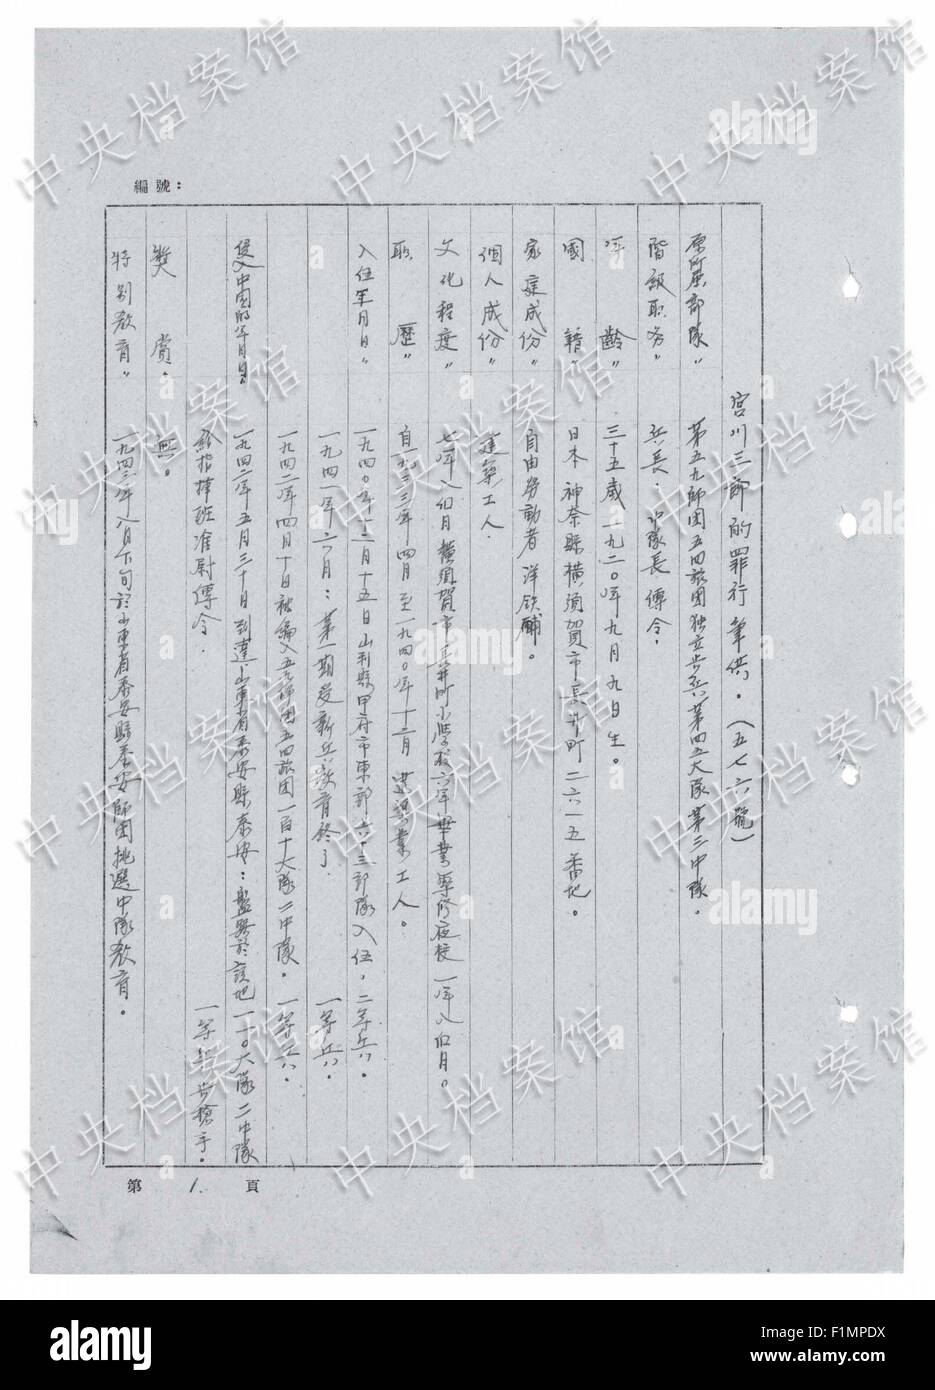 編號：
宮川三郎的罪行筆供。（五七六號）
原所屬部隊〃 第五九師團五四旅團独立步兵第四五大隊第三中隊。
階級职务〃 兵長．中隊長傳令．
年齡〃 三十五歲一九二〇年九月九日生。
國籍〃 日本神奈縣橫須賀市長井町二六一五番地。
家庭成份〃 自由勞動者 洋鉄舖。
個人成份〃 建築工人．
文化程度〃 七年八個月 橫須賀市長井町小學校六年畢業專修夜校一年八個月。
职歷〃 自一九三三年四月至一九四〇年十二月 建築業工人。
入伍年月日〃 一九四〇年十二月十五日山梨縣甲府市東部六十三部隊入伍，二等兵。
一九四一年六月：第一期受新兵教育終了 一等兵。
一九四二年四月十日被編入五九師團五四旅團一百十大隊二中隊。一等兵。
侵入中国的年月日〃 一九四二年五月三十日到達山東省泰安縣泰安：盤踞於該地一一〇大隊二中隊
給指揮班准尉傳令． 一等兵步槍手。
獎賞。 無。
特别教育〃 一九四三年八月下旬於山東省泰安縣泰安師團挑選中隊教育。
第 1. 頁
中央档案馆
alamy
a
alamy
Image ID: F1MPDX
www.alamy.com